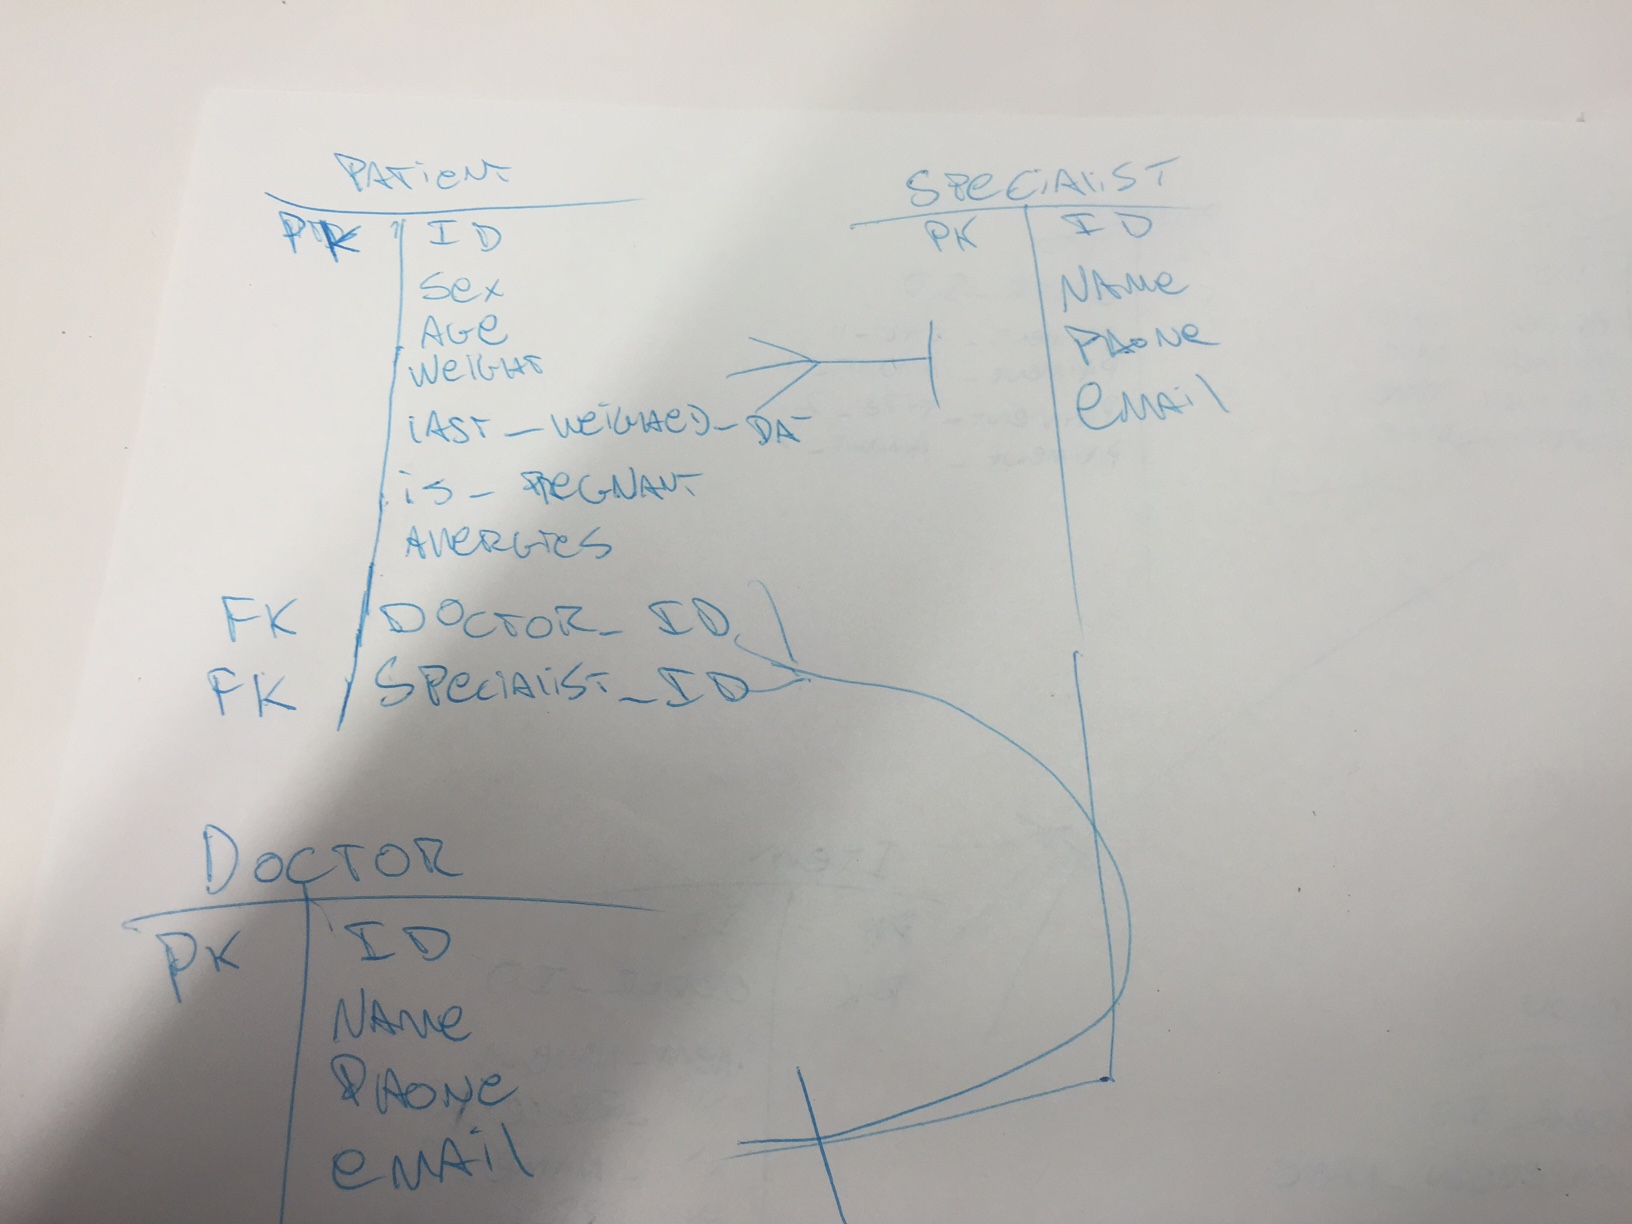 PATIENT
PK ID
SEX
AGE
WEIGHT
LAST_WEIGHED_DA-
IS_PREGNANT
ALLERGIES
FK DOCTOR_ID
FK SPECIALIST_ID
SPECIALIST
PK ID
NAME
PHONE
EMAIL
DOCTOR
PK ID
NAME
PHONE
EMAIL